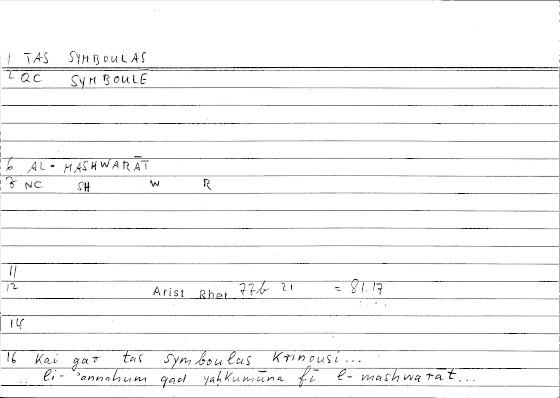 1 TAS SYMBOULAS
2 QC SYMBOULE
6 AL-MASHWARĀT
8 NC SH W R
11
12 Arist Rhet 77b 21 = 81.17
14
16 Kai gar tas symboulas krinousi...
.. li-ʾannahum qad yaḥkumūna fī l-mashwarāt...